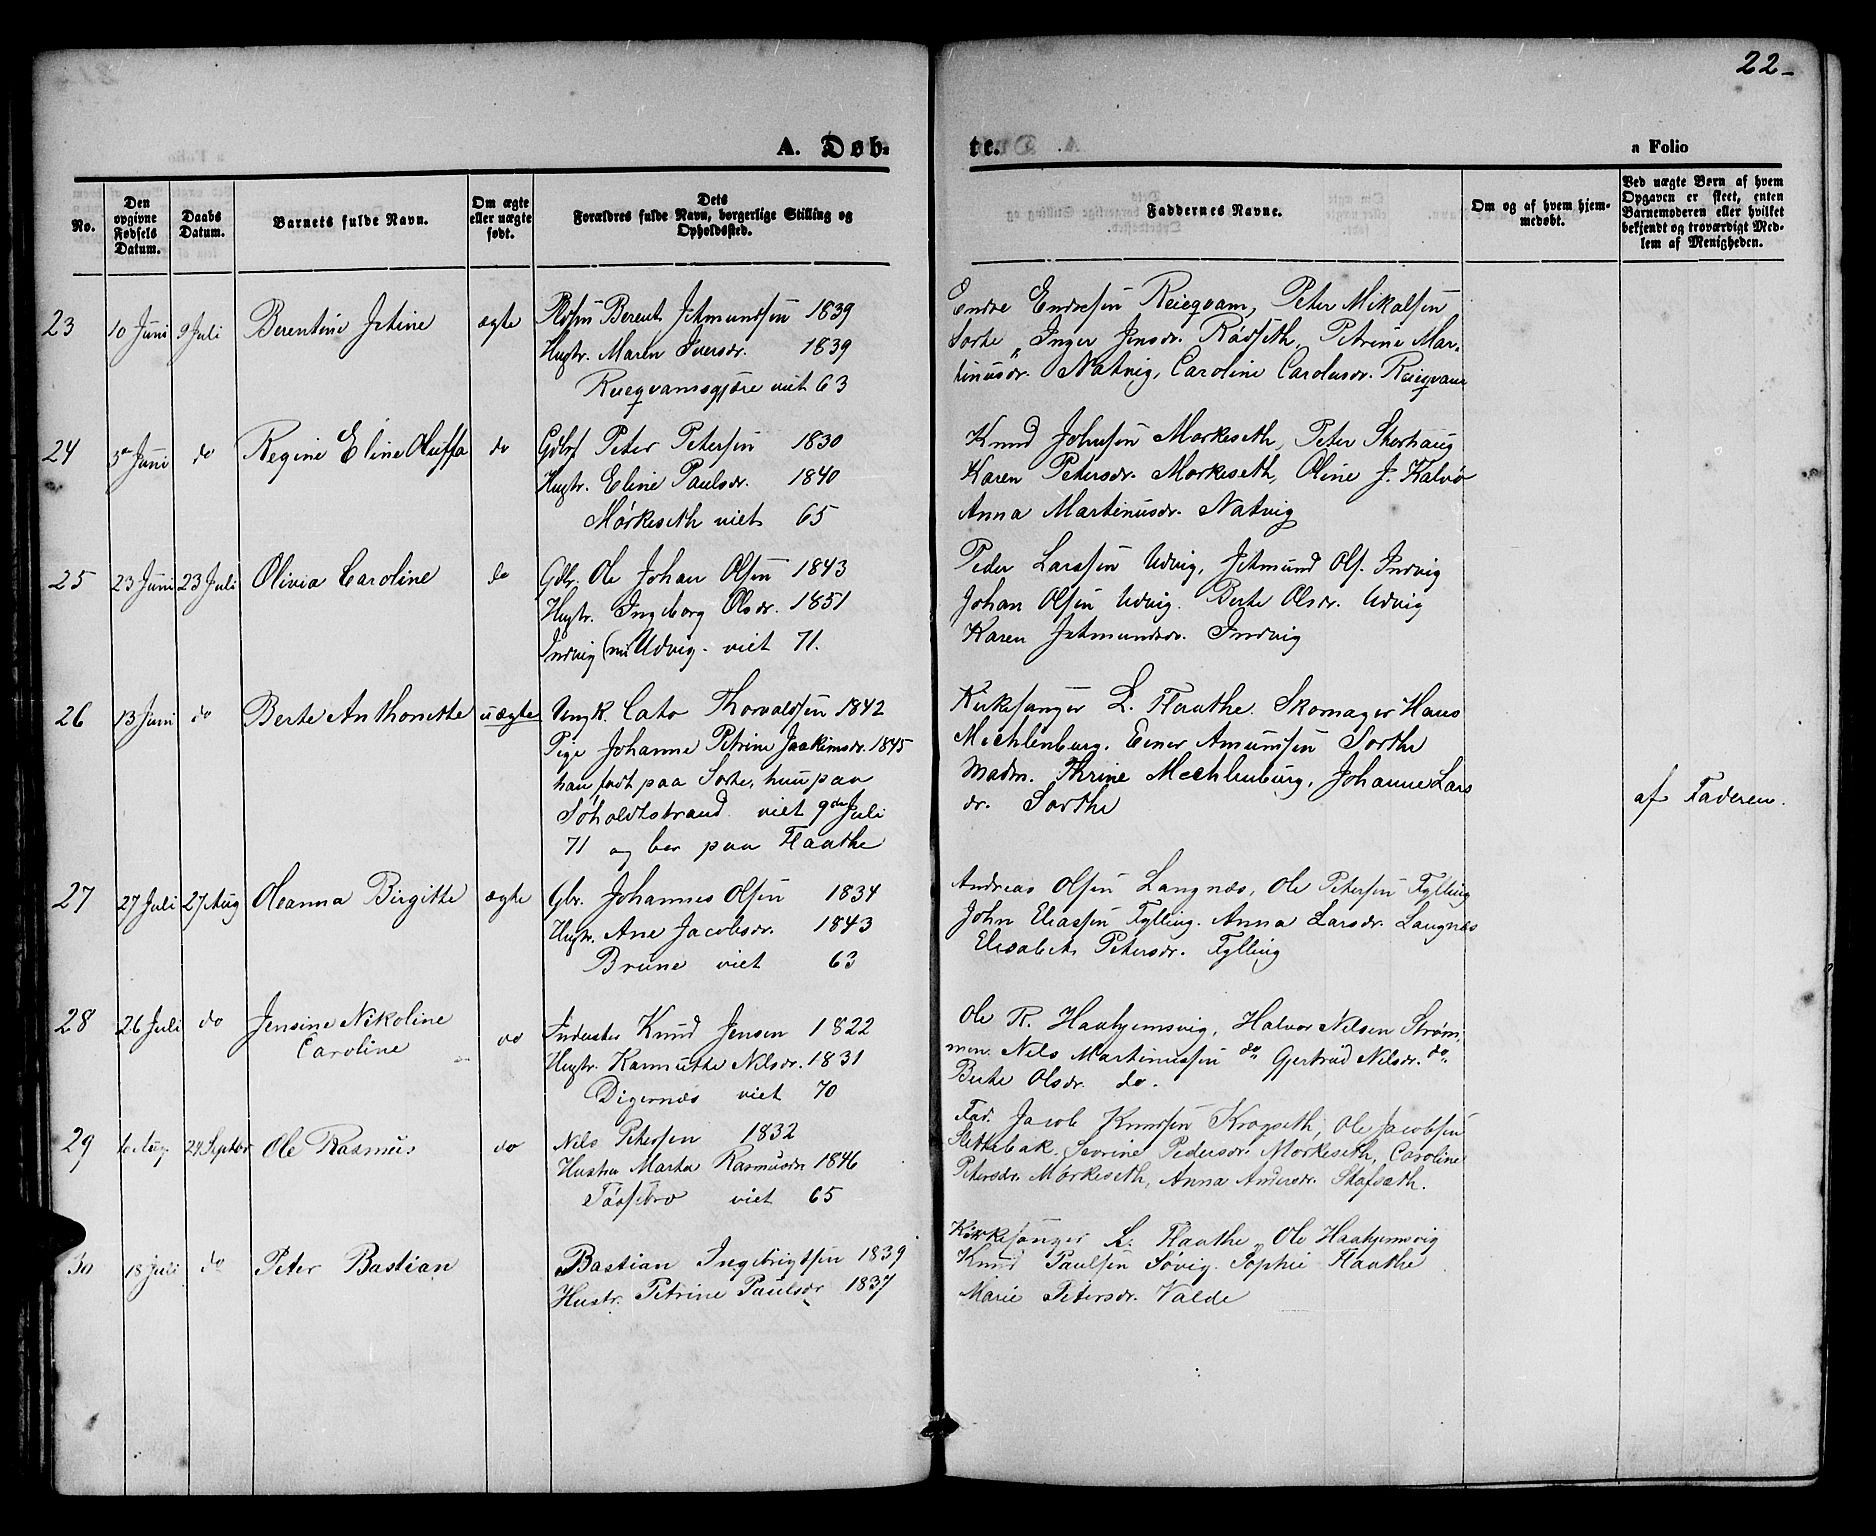 22-
A. Døb-
te.
a Folio
No.
Den opgivne Fødsels Datum.
Daabs Datum.
Barnets fulde Navn.
Om ægte eller uægte født.
Dets Forældres fulde Navn, borgerlige Stilling og Opholdssted.
Faddernes Navne.
Om og af hvem hjemmedøbt.
Ved uægte Børn af hvem Opgaven er skeet, enten Barnemoderen eller hvilket bekjendt og troværdigt Medlem af Menigheden.
23 10 Juni 9 Juli Berentine Jetine ægte
Berent Jetmundsen 1839
Hustr. Maren Iversdr. 1839
Reieqvamsgjære viet 63
Endre Endresen Reieqvam, Peter Mikalsen
Sorte, Inger Jensdr. Rødseth, Petrine Mar-
tinusdr. Natvig, Caroline Carolusdr. Reieqvam
24 Juni do Regine Eline Oluffa do
Gdbr Peter Petersen 1830
Hustr. Eline Paulsdr. 1840
Mørkeseth viet 65
Knud Johnsen Morkeseth, Peter Storhaug
Karen Petersdr. Morkeseth, Oline J. Kalvø
Anna Martinusdr. Natvig
25 23 Juni 23 Juli Olivia Caroline do
Gdbr. Ole Johan Olsen 1843
Hustr. Ingeborg Olsdr. 1851
Indvig (nu Udvig. viet 71.
Peder Larssen Udvig, Jetmund Ols. Indvig
Johan Olsen Udvig. Berte Olsdr. Udvig
Karen Jetmundsdr. Indvig
26 13 Juni do Berte Anthonette uægte
Ungk. Cato Thorvaldsen 1842
Pige Johanne Petrine Joakimsdr. 1845
han født paa Sorte, hun paa
Søholdtstrand viet 9de Juli
71 og bor paa Flaathe
Kirkesanger L. Flaathe. Skomager Hans
Mechlenburg. Einer Amunsen Sorthe
Madm. Thrine Mechlenburg, Johanne Lars
dr. Sorthe
af Faderen.
27 27 Juli 27 Aug Oleanna Birgitte ægte
Gbr. Johannes Olsen 1834
Hustr. Ane Jacobsdr. 1843
Brune viet 63
Andreas Olsen Langnæs, Ole Petersen Fylling
John Eliassen Fylling. Anna Larsdr. Langnæs
Elisabeth Petersdr. Fylling
28 26 Juli do Jensine Nikoline
Caroline do
Inderster Knud Jensen 1822
Hustr. Rasmutte Nilsdr. 1831
Digernæs viet 70
Ole R. Haahjemsvig, Halvor Nilsen Strøm-
men. Nils Martinussen do Gjertrud Nilsdr. do.
Berte Olsdr. do.
29 Aug. 24 Septbr Ole Rasmus do
Nils Petersen 1832
Hustru Marta Rasmusdr 1846
Tøssebro viet 65
Fad. Jacob Knudsen Krogseth, Ole Jacobsen
Slettebak. Severine Pedersdr. Morkeseth, Caroline
Petersdr. Morkeseth, Anna Andersdr. Stafsæth.
30 18 Juli do Peter Bastian
Bastian Ingebrigtsen 1839
Hustr. Petrine Paulsdr 1837
Kirkesanger L. Flaathe, Ole Haahjemsvig
Knud Paulsen Søvig. Sophie Flaathe
Marie Petersdr. Valde